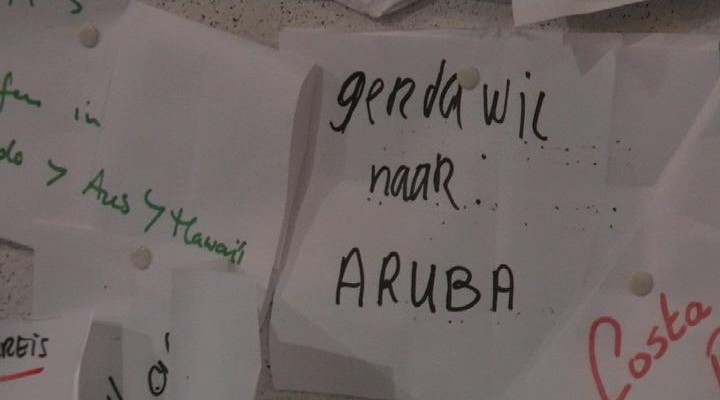 in
> Aus > Hawaii
gerda wil
naar:
ARUBA
REIS
Costa